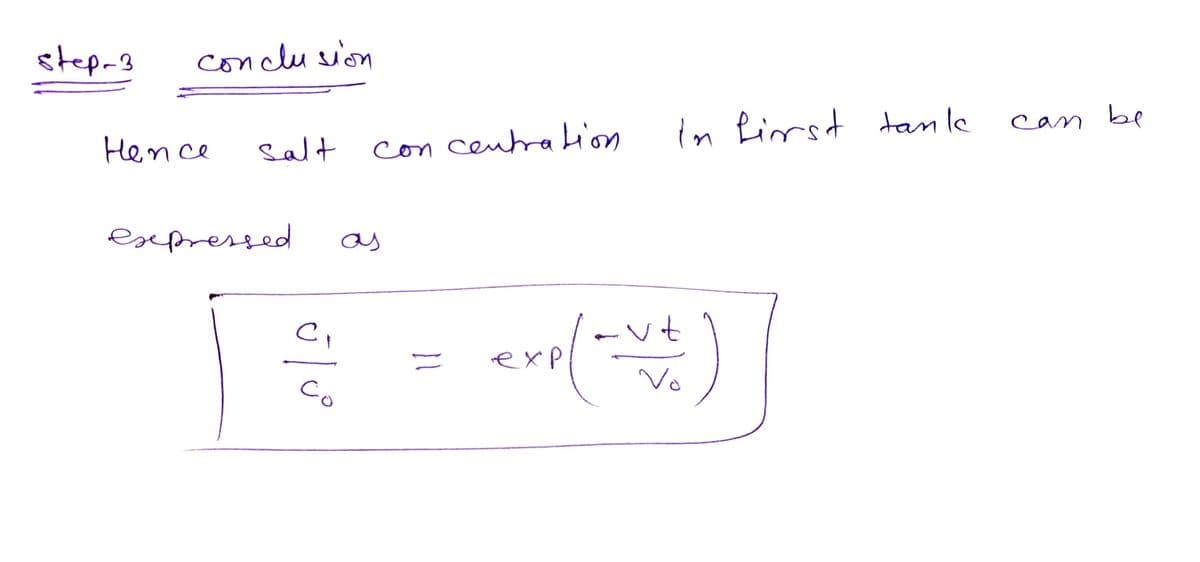 step-3 conclusion
Hence salt concentration in first tank can be
expressed as
C₁/C₀ = exp(-vt/V₀)